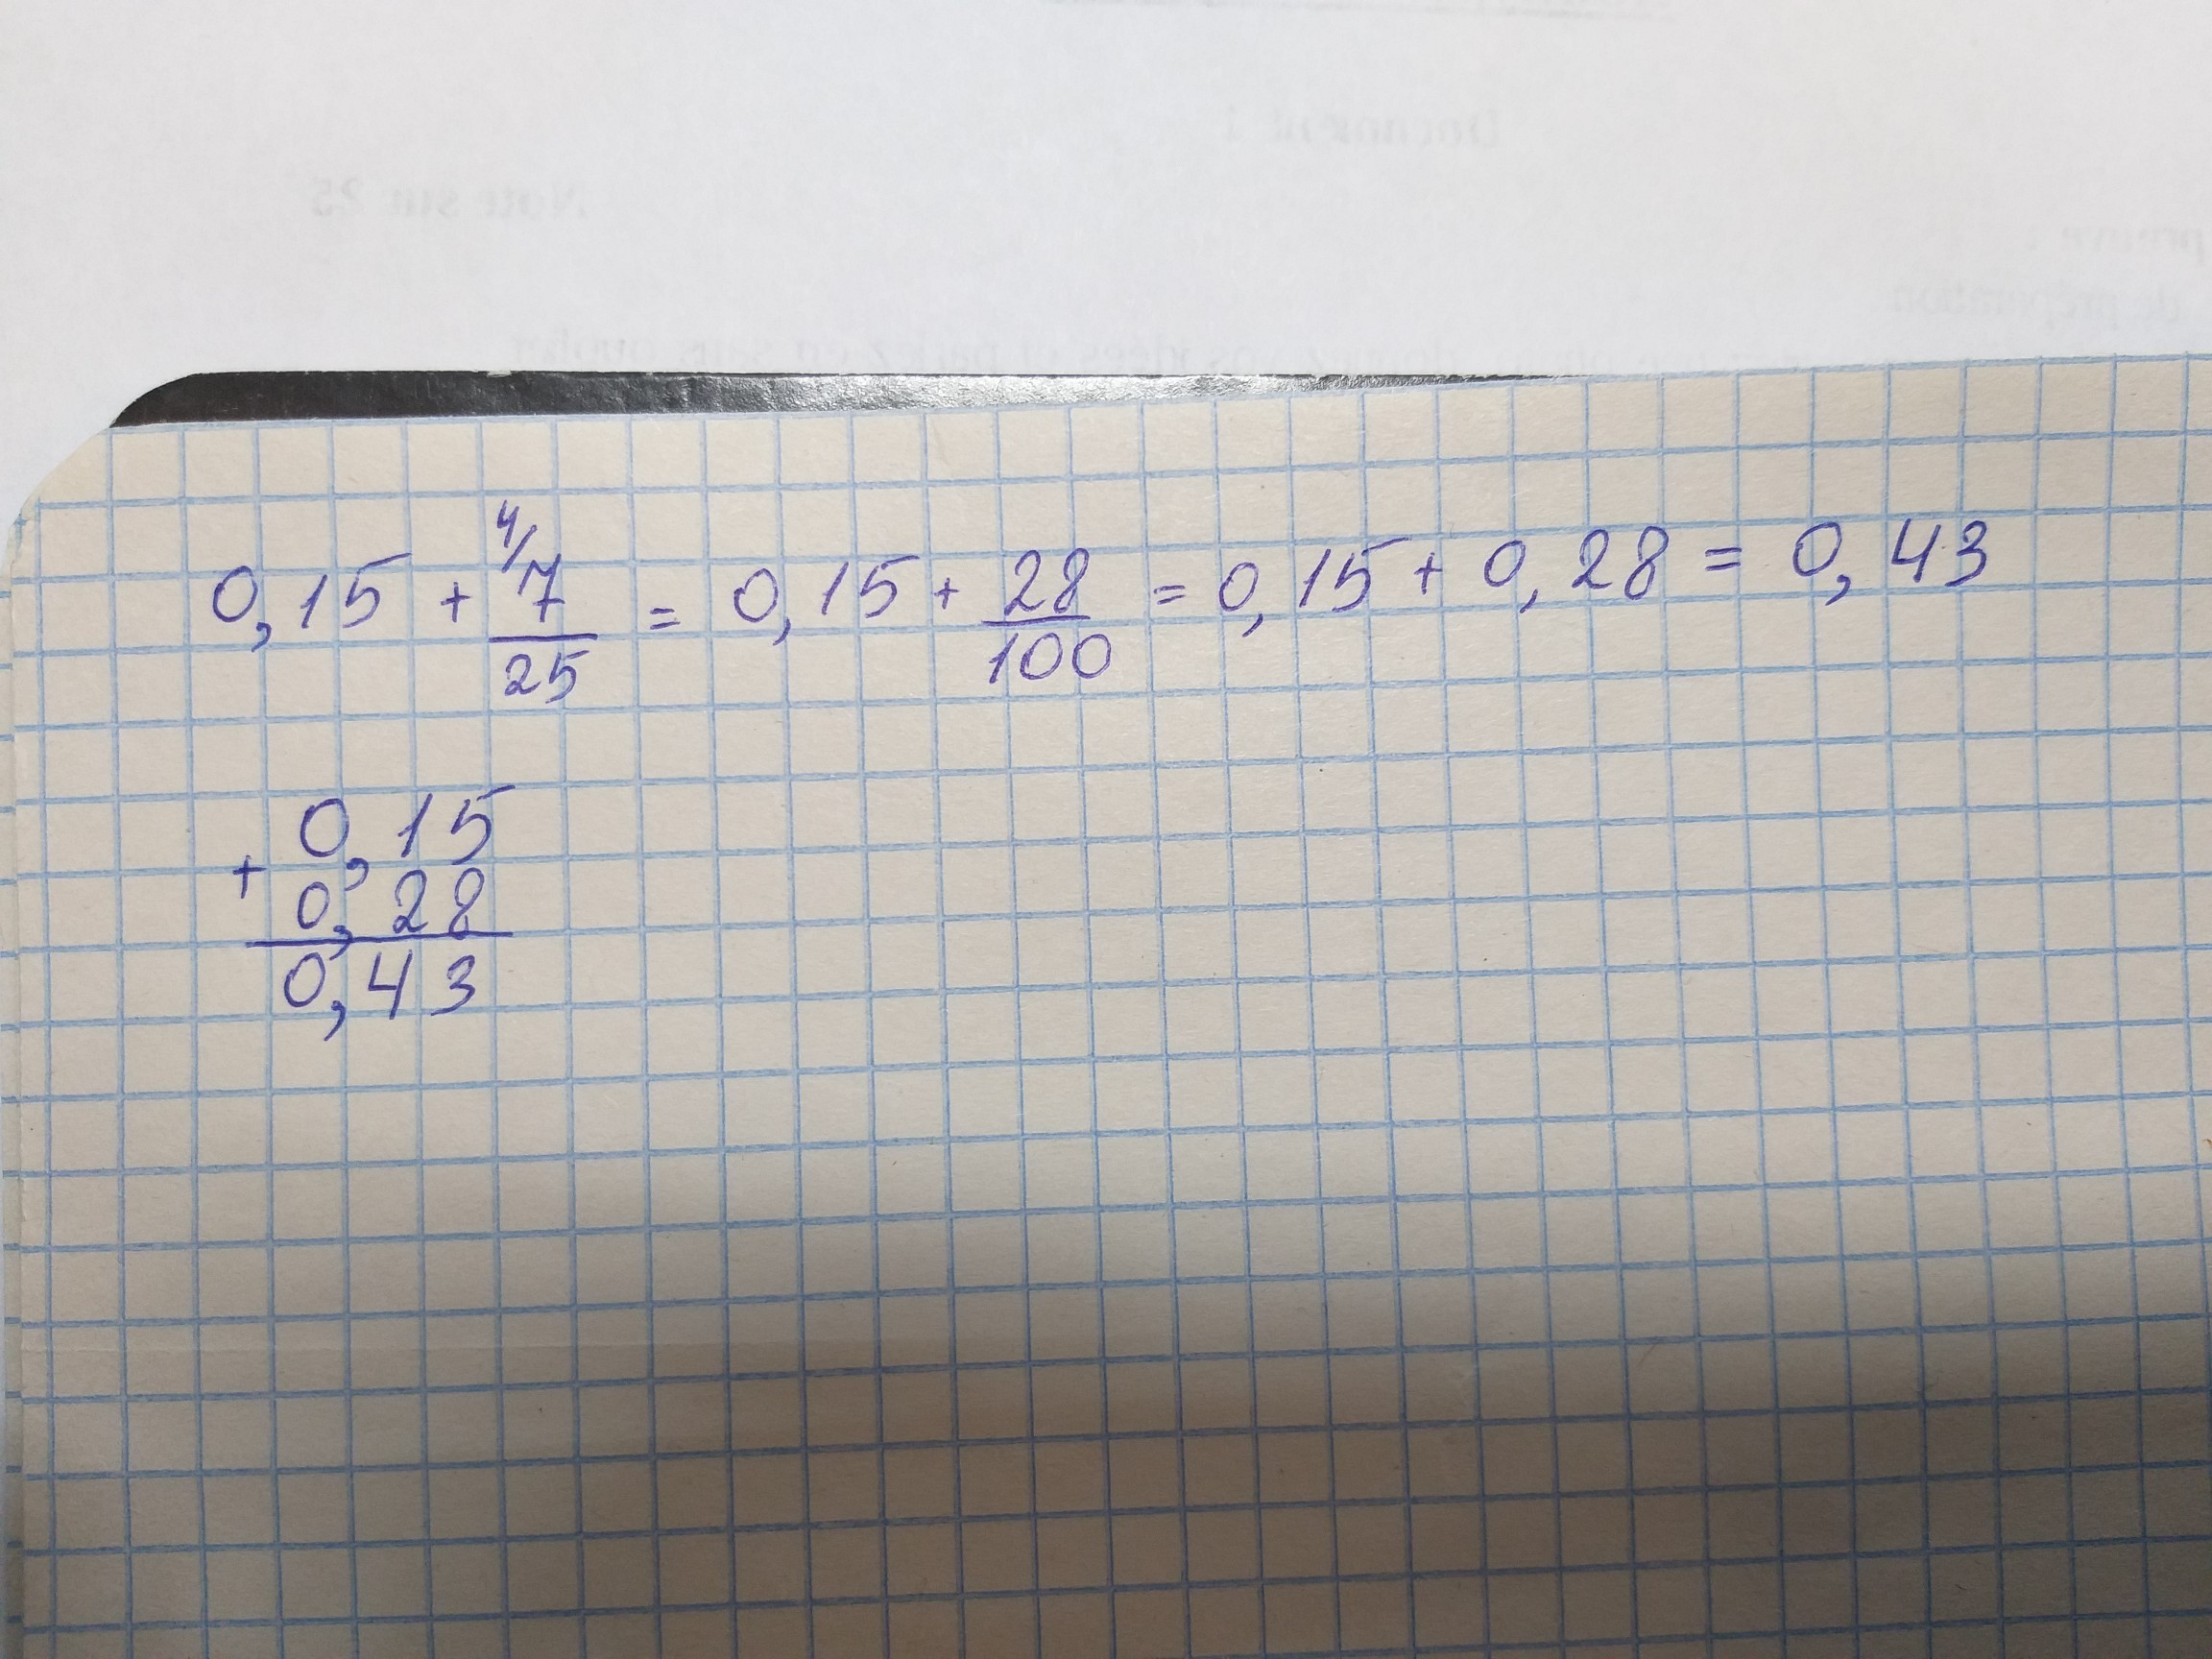 0,15 + 4/ 7/25 = 0,15 + 28/100 = 0,15 + 0,28 = 0,43
0,15
+
0,28
0,43